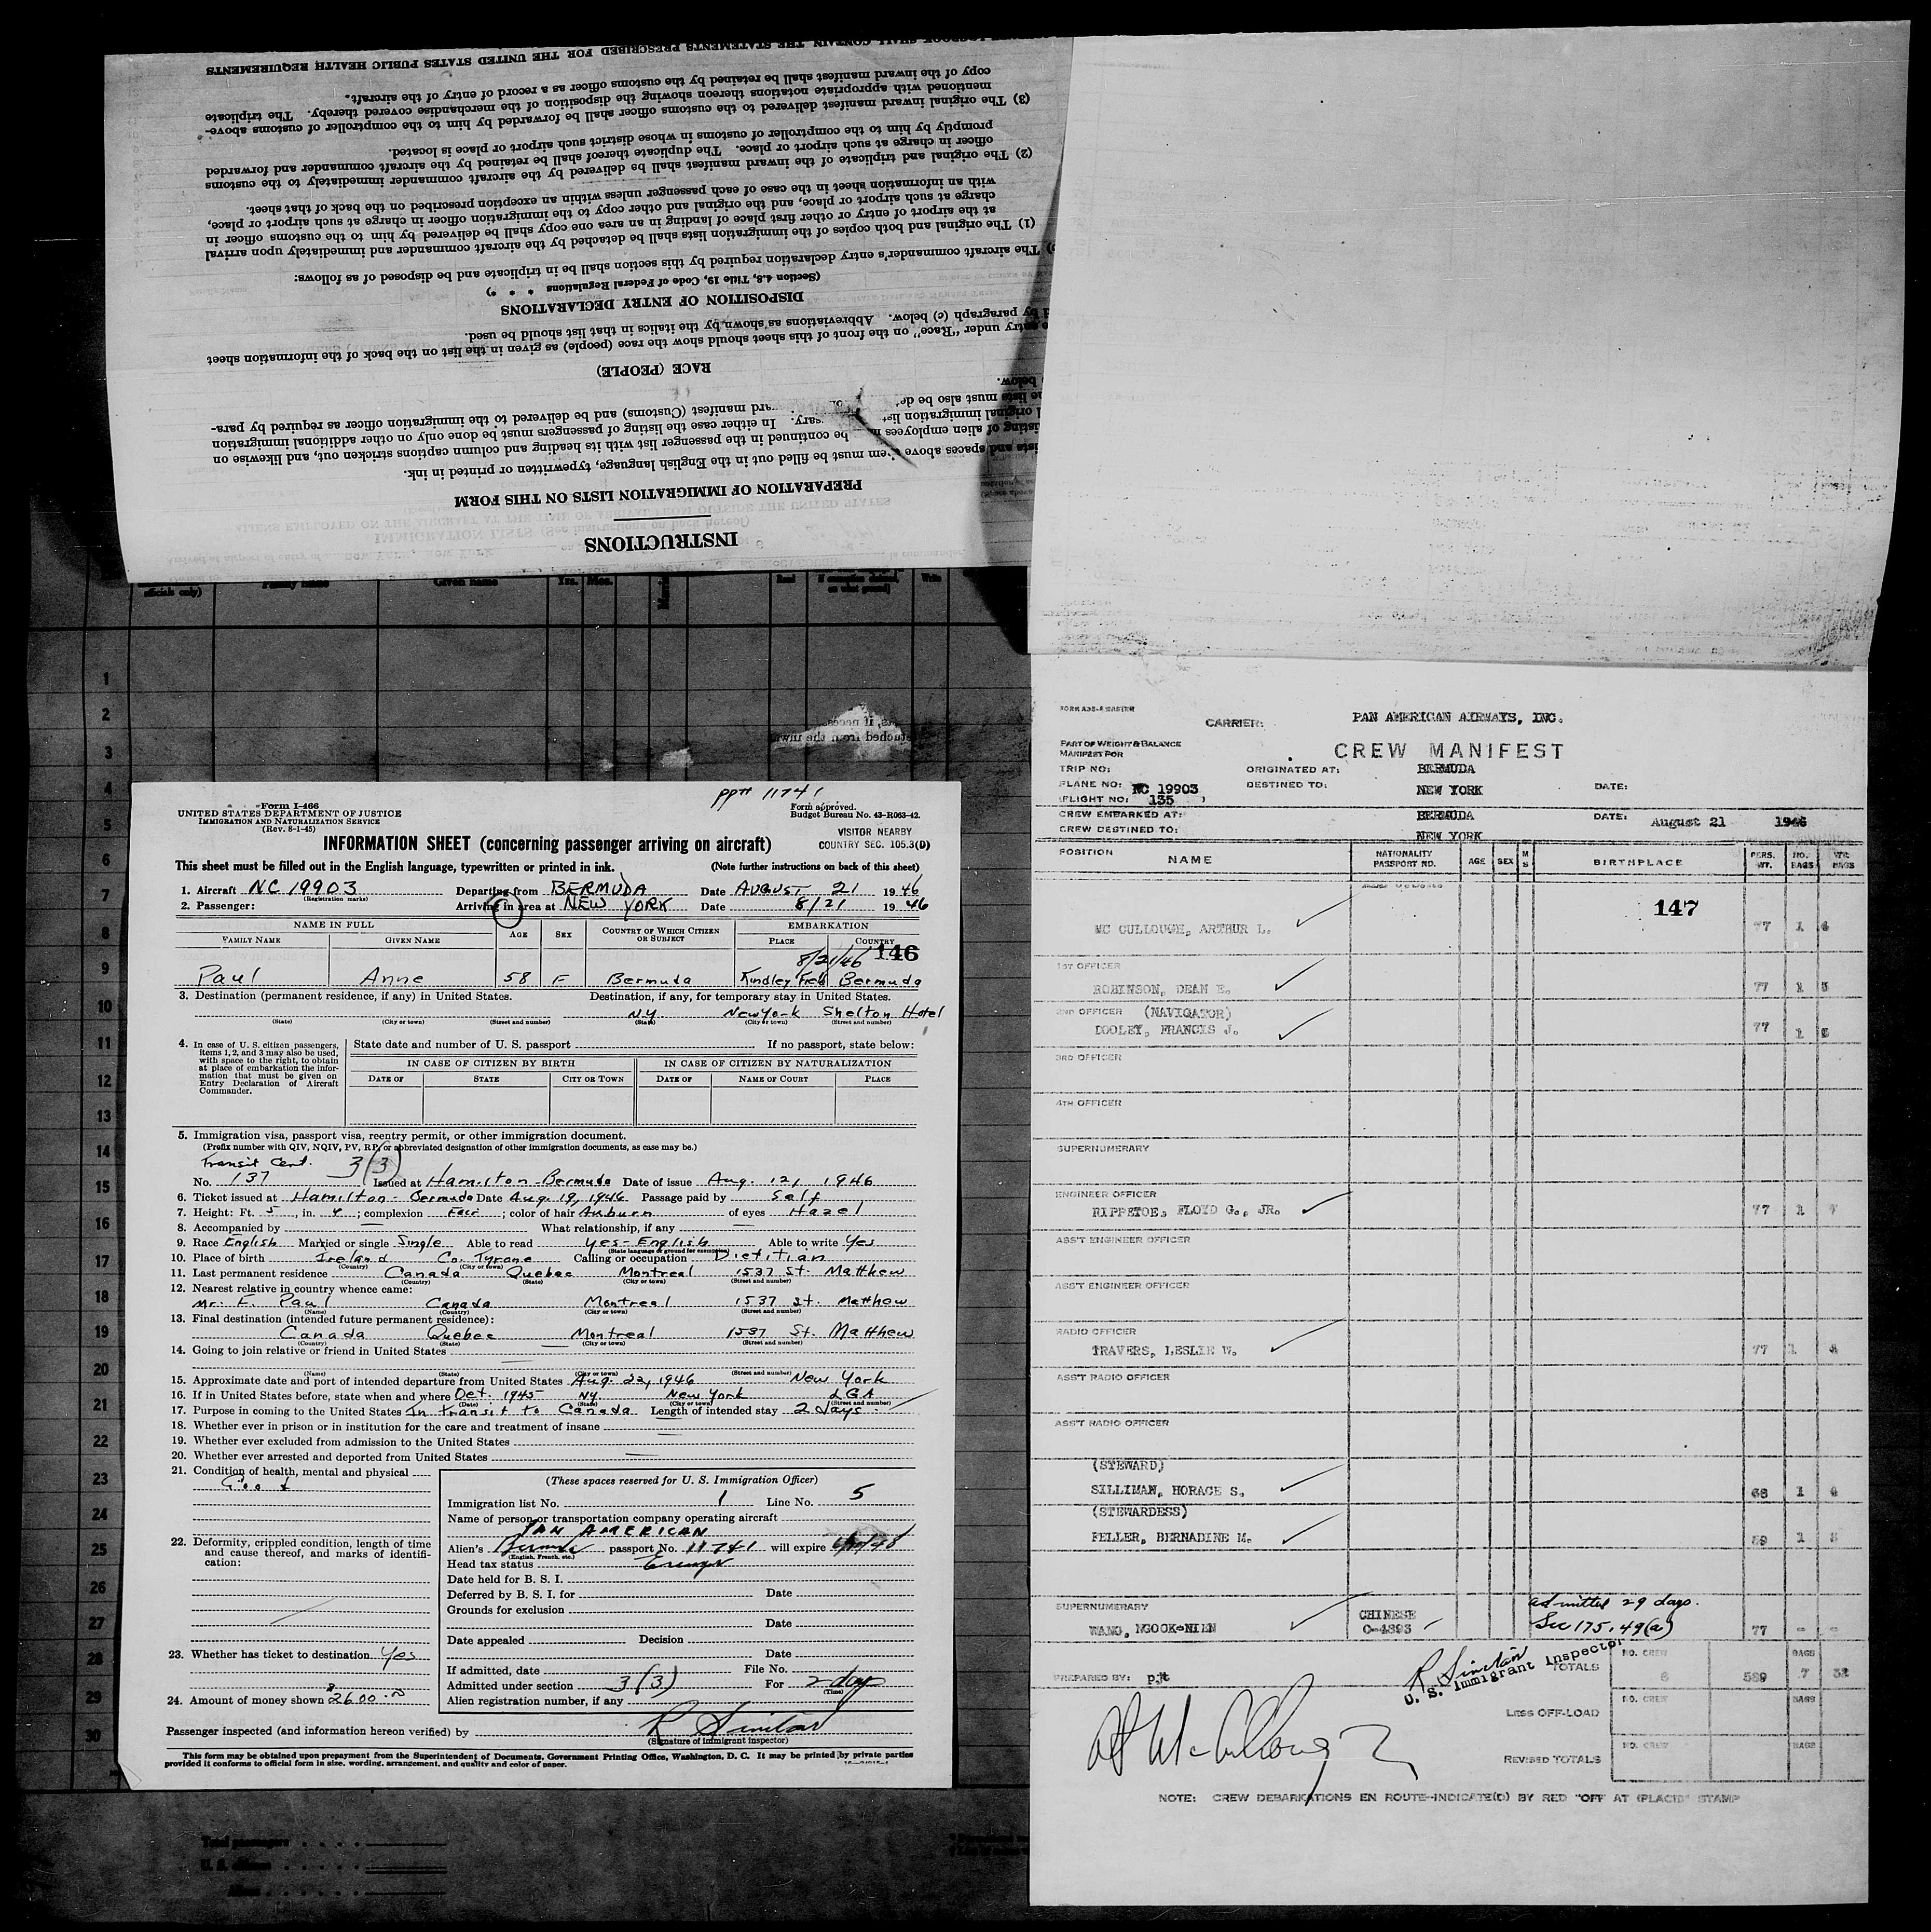 INSTRUCTIONS
PREPARATION OF IMMIGRATION LISTS ON THIS FORM
lists and spaces above must be filled out in the English language, typewritten or printed in ink.
listing of alien employees be continued in the passenger list with its heading and column captions stricken out, and likewise on
original immigration In either case the listing of passengers must be done only on other additional immigration
lists must also be manifest (Customs) and be delivered to the immigration officer as required by para-
below.
RACE (PEOPLE)
entry under "Race" on the front of this sheet should show the race (people) as given in the list on the back of the information sheet
by paragraph (c) below. Abbreviations as shown by the italics in that list should be used.
DISPOSITION OF ENTRY DECLARATIONS
(Section 4.8, Title 19, Code of Federal Regulations * * *)
The aircraft commander's entry declaration required by this section shall be in triplicate and be disposed of as follows:
(1) The original and both copies of the immigration lists shall be detached by the aircraft commander and immediately upon arrival
at the airport of entry or other first place of landing in an area one copy shall be delivered by him to the customs officer in
charge at such airport or place, and the original and other copy to the immigration officer in charge at such airport or place,
with an information sheet in the case of each passenger unless within an exception prescribed on the back of that sheet.
(2) The original and triplicate of the inward manifest shall be delivered by the aircraft commander immediately to the customs
officer in charge at such airport or place. The duplicate thereof shall be retained by the aircraft commander and forwarded
promptly by him to the comptroller of customs in whose district such airport or place is located.
(3) The original inward manifest delivered to the customs officer shall be forwarded by him to the comptroller of customs above-
mentioned with appropriate notations thereon showing the disposition of the merchandise covered thereby. The triplicate
copy of the inward manifest shall be retained by the customs officer as a record of entry of the aircraft.
SHALL CONTAIN THE STATEMENTS PRESCRIBED FOR THE UNITED STATES PUBLIC HEALTH REQUIREMENTS
Family name Given name Yrs. Mos. Read Write
1
2
3
4
5
6
7
8
9
10
11
12
13
14
15
16
17
18
19
20
21
22
23
24
25
26
27
28
29
30
Total passengers
U. S. citizens
Aliens
ppt# 11741
Form I-466
UNITED STATES DEPARTMENT OF JUSTICE
IMMIGRATION AND NATURALIZATION SERVICE
(Rev. 8-1-45)
Form approved.
Budget Bureau No. 43-R063-42.
VISITOR NEARBY
COUNTRY SEC. 105.3(D)
INFORMATION SHEET (concerning passenger arriving on aircraft)
This sheet must be filled out in the English language, typewritten or printed in ink. (Note further instructions on back of this sheet)
1. Aircraft NC 19903 Departing from BERMUDA Date AUGUST 21 1946
(Registration marks)
2. Passenger: Arriving in area at NEW YORK Date 8/21 1946
NAME IN FULL AGE SEX COUNTRY OF WHICH CITIZEN OR SUBJECT EMBARKATION
FAMILY NAME GIVEN NAME PLACE COUNTRY
8/21/46 146
Paul Anne 58 F Bermuda Kindley Field Bermuda
3. Destination (permanent residence, if any) in United States. Destination, if any, for temporary stay in United States.
NY New York Shelton Hotel
(State) (City or town) (Street and number) (State) (City or town) (Street and number)
4. In case of U. S. citizen passengers, items 1, 2, and 3 may also be used, with space to the right, to obtain at place of embarkation the information that must be given on Entry Declaration of Aircraft Commander.
State date and number of U. S. passport If no passport, state below:
IN CASE OF CITIZEN BY BIRTH IN CASE OF CITIZEN BY NATURALIZATION
DATE OF STATE CITY OR TOWN DATE OF NAME OF COURT PLACE
5. Immigration visa, passport visa, reentry permit, or other immigration document.
(Prefix number with QIV, NQIV, PV, RP, or abbreviated designation of other immigration documents, as case may be.)
Transit Cert. 3(3)
No. 137 Issued at Hamilton-Bermuda Date of issue Aug. 12, 1946
6. Ticket issued at Hamilton-Bermuda Date Aug. 19, 1946 Passage paid by Self
7. Height: Ft. 5, in. 4; complexion Fair; color of hair Auburn of eyes Hazel
8. Accompanied by — What relationship, if any —
9. Race English Married or single Single Able to read yes-English Able to write Yes
(State language or ground for exemption)
10. Place of birth Ireland Co. Tyrone Calling or occupation Dietitian
(Country) (City or town)
11. Last permanent residence Canada Quebec Montreal 1537 St. Matthew
(Country) (State) (City or town) (Street and number)
12. Nearest relative in country whence came:
Mr. F. Paul Canada Montreal 1537 St. Matthew
(Name) (Country) (City or town) (Street and number)
13. Final destination (intended future permanent residence):
Canada Quebec Montreal 1537 St. Matthew
(Country) (State) (City or town) (Street and number)
14. Going to join relative or friend in United States —
(Name) (State) (City or town) (Street and number)
15. Approximate date and port of intended departure from United States Aug. 22, 1946 New York
16. If in United States before, state when and where Oct. 1945 NY. New York LGA
(Date) (State) (City or town) (Street and number)
17. Purpose in coming to the United States In transit to Canada Length of intended stay 2 days.
18. Whether ever in prison or in institution for the care and treatment of insane —
19. Whether ever excluded from admission to the United States —
20. Whether ever arrested and deported from United States —
21. Condition of health, mental and physical
Good
22. Deformity, crippled condition, length of time and cause thereof, and marks of identification:
23. Whether has ticket to destination Yes
24. Amount of money shown $2600.00
(These spaces reserved for U. S. Immigration Officer)
Immigration list No. 1 Line No. 5
Name of person or transportation company operating aircraft
PAN AMERICAN
Alien's passport No. 11741 will expire
(English, French, etc.)
Head tax status
Date held for B. S. I.
Deferred by B. S. I. for Date
Grounds for exclusion
Date
Date appealed Decision
Date
If admitted, date File No.
Admitted under section 3(3) For 2 day
(Time)
Alien registration number, if any
Passenger inspected (and information hereon verified) by R Sinclair
(Signature of immigrant inspector)
This form may be obtained upon prepayment from the Superintendent of Documents, Government Printing Office, Washington, D. C. It may be printed by private parties
provided it conforms to official form in size, wording, arrangement, and quality and color of paper.
CARRIER: PAN AMERICAN AIRWAYS, INC.
PART OF WEIGHT & BALANCE
MANIFEST FOR
CREW MANIFEST
TRIP NO: ORIGINATED AT: BERMUDA
PLANE NO: NC 19903 DESTINED TO: NEW YORK DATE:
(FLIGHT NO: 135 )
CREW EMBARKED AT: BERMUDA DATE: August 21 1946
CREW DESTINED TO: NEW YORK
POSITION NAME NATIONALITY PASSPORT NO. AGE SEX M S BIRTHPLACE PERS. WT. NO. BAGS WT. BAGS
147
MC CULLOUGH, ARTHUR L. 77 1 4
1ST OFFICER
ROBINSON, DEAN E. 77 1
2ND OFFICER (NAVIGATOR)
DOOLEY, FRANCIS J. 77 1
3RD OFFICER
4TH OFFICER
SUPERNUMERARY
ENGINEER OFFICER
RIPPETOE, FLOYD G., JR. 77 1
ASS'T ENGINEER OFFICER
ASS'T ENGINEER OFFICER
RADIO OFFICER
TRAVERS, LESLIE W. 77 1
ASS'T RADIO OFFICER
ASS'T RADIO OFFICER
(STEWARD)
SILLIMAN, HORACE S. 68 1 4
(STEWARDESS)
FELLER, BERNADINE M. 59 1
SUPERNUMERARY
WANG, NGOOK-NIEN CHINESE C-4893 77 - -
admitted 29 days.
Sec 175.49(a)
R Sinclair
U. S. Immigrant Inspector
PREPARED BY: pjt
TOTALS NO. CREW 6 589 BAGS 7 32
LESS OFF-LOAD NO. CREW BAGS
REVISED TOTALS NO. CREW BAGS
NOTE: CREW DEBARKATIONS EN ROUTE—INDICATE(D) BY RED "OFF AT (PLACE)" STAMP